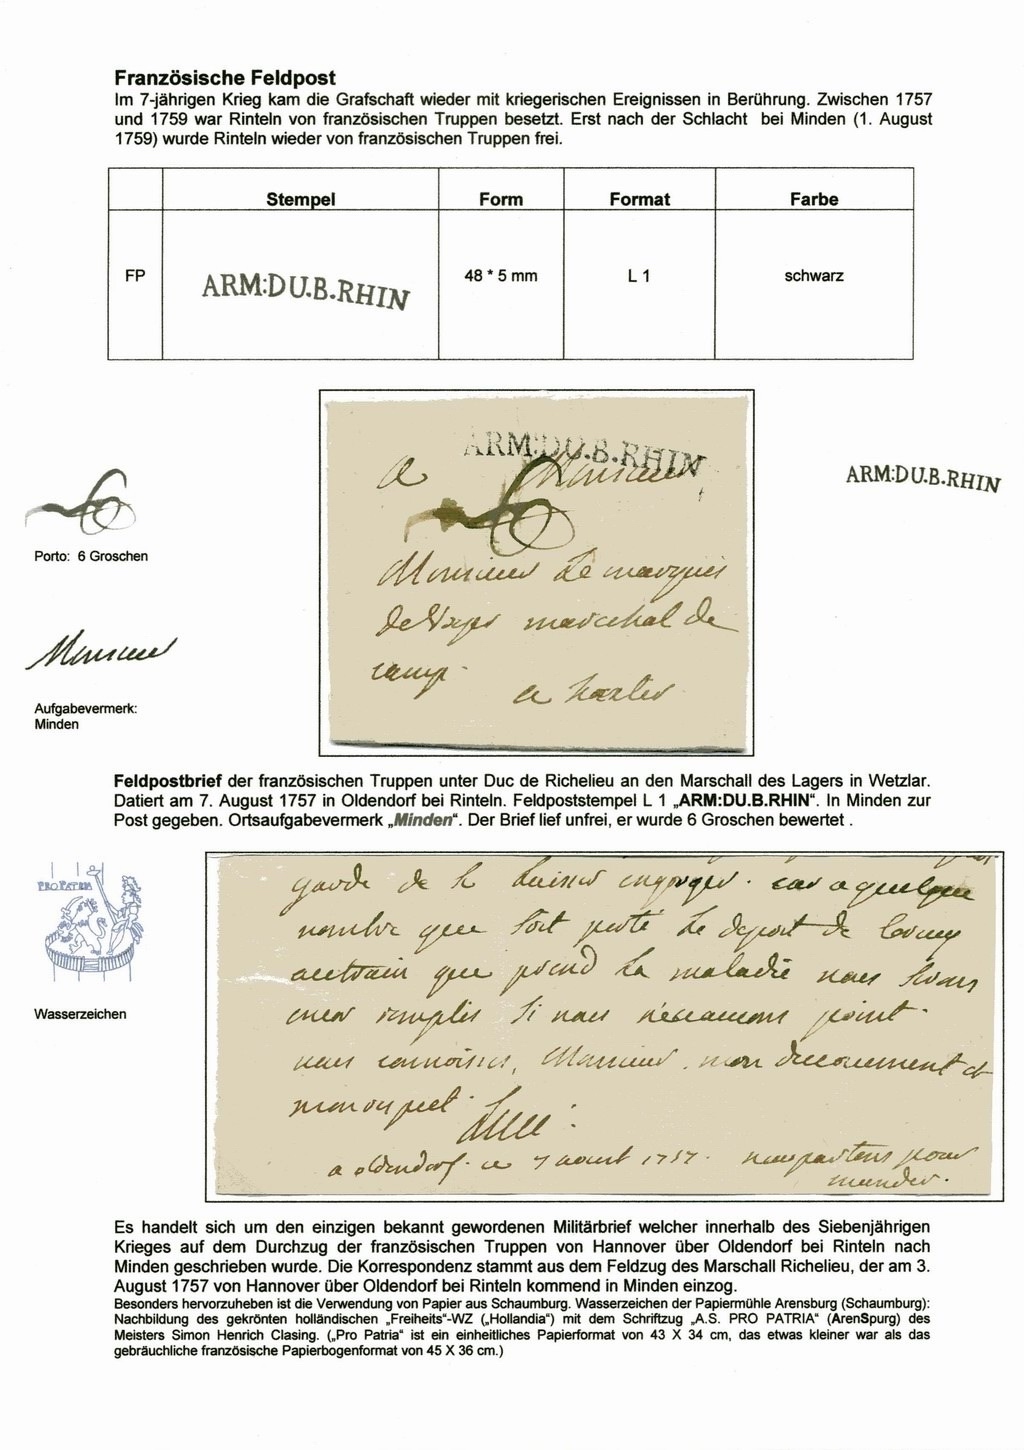 Französische Feldpost
Im 7-jährigen Krieg kam die Grafschaft wieder mit kriegerischen Ereignissen in Berührung. Zwischen 1757
und 1759 war Rinteln von französischen Truppen besetzt. Erst nach der Schlacht bei Minden (1. August
1759) wurde Rinteln wieder von französischen Truppen frei.
Stempel Form Format Farbe
FP ARM:DU.B.RHIN 48 * 5 mm L 1 schwarz
ARM:DU.B.RHIN
a Monsieur
ARM:DU.B.RHIN
Porto: 6 Groschen
Monsieur Le marquis
de marechal de
camp.
a
Monsieur
Aufgabevermerk:
Minden
Feldpostbrief der französischen Truppen unter Duc de Richelieu an den Marschall des Lagers in Wetzlar.
Datiert am 7. August 1757 in Oldendorf bei Rinteln. Feldpoststempel L 1 „ARM:DU.B.RHIN“. In Minden zur
Post gegeben. Ortsaufgabevermerk „Minden“. Der Brief lief unfrei, er wurde 6 Groschen bewertet .
PRO PATRIA
Wasserzeichen
garde de . car a quelque
nombre que soit porté Le depost de
que prend La maladie nous
remplis Si nous point.
vous connoissés, Monsieur, mon et
mon respect.
a oldendorf. ce 7 aoust 1757. nous partons pour
minden.
Es handelt sich um den einzigen bekannt gewordenen Militärbrief welcher innerhalb des Siebenjährigen
Krieges auf dem Durchzug der französischen Truppen von Hannover über Oldendorf bei Rinteln nach
Minden geschrieben wurde. Die Korrespondenz stammt aus dem Feldzug des Marschall Richelieu, der am 3.
August 1757 von Hannover über Oldendorf bei Rinteln kommend in Minden einzog.
Besonders hervorzuheben ist die Verwendung von Papier aus Schaumburg. Wasserzeichen der Papiermühle Arensburg (Schaumburg):
Nachbildung des gekrönten holländischen „Freiheits“-WZ („Hollandia“) mit dem Schriftzug „A.S. PRO PATRIA“ (ArenSpurg) des
Meisters Simon Henrich Clasing. („Pro Patria“ ist ein einheitliches Papierformat von 43 X 34 cm, das etwas kleiner war als das
gebräuchliche französische Papierbogenformat von 45 X 36 cm.)